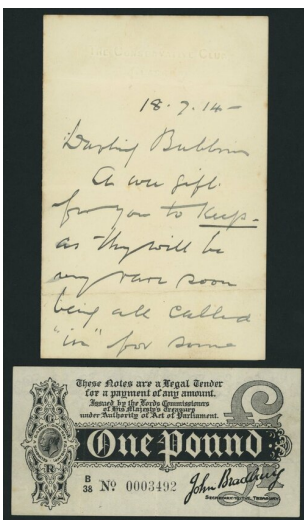 18.9.14 -
Darling
A wee gift
for you to keep -
as they will be
very rare soon
being all called
"in" for some
These Notes are a Legal Tender
for a payment of any amount.
Issued by the Lords Commissioners
of His Majesty's Treasury
under Authority of Act of Parliament.
£1
One Pound
B
38 No 0003492
John Bradbury
SECRETARY TO THE TREASURY